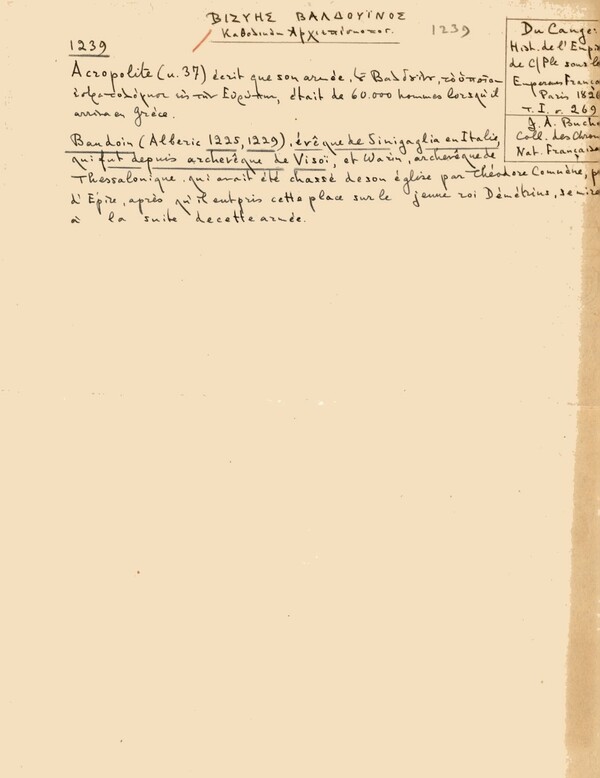 ΒΙΖΥΗΣ ΒΑΛΔΟΥΪΝΟΣ
Καθολικὸς Ἀρχιεπίσκοπος.
1239
1239
Du Cange:
Hist. de l'Emp
de C/Ple sous l
Emperaus França
Paris 182
T. I. σ. 269
J. A. Bucho
Coll. des Chron
Nat. Française
Acropolite (κ. 37) écrit que son armée,
εἰς τὴν Εὐρώπην, était de 60.000 hommes lorsqu'il
arriva en Grèce.
Baudoin (Alberic 1225, 1229), évêque de Sinigaglia en Italie,
qui fut depuis archevêque de Visoï, et Warin, archevêque de
Thessalonique. qui avait été chassé de son église par Théodore Comnène, p
d'Epire, après qu'il eut pris cette place sur le jeune roi Démétrius, se mire
à la suite de cette armée.